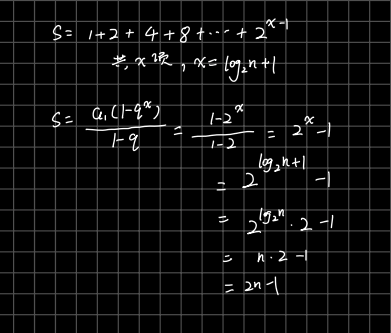 S = 1+2+4+8+⋯+2^{x-1}
共 x 项, x = log₂n+1
S = \frac{a_1(1-q^x)}{1-q} = \frac{1-2^x}{1-2} = 2^x-1
= 2^{log₂n+1} -1
= 2^{log₂n}·2 -1
= n·2 -1
= 2n-1